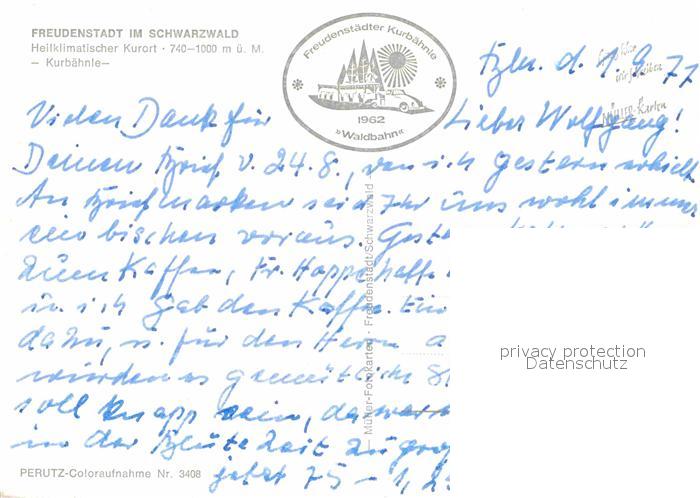 FREUDENSTADT IM SCHWARZWALD
Heilklimatischer Kurort · 740–1000 m ü. M.
— Kurbähnle—
Freudenstädter Kurbähnle
1962
»Waldbahn«
d. 1.9.77
Lieber Wolfgang!
Vielen Dank für
Deinen Brief v. 24.8., den ich gestern erhielt.
An Briefmarken seid Ihr uns wohl immer
ein bischen voraus. Geste
zum Kaffee, Fr. Hoppe
u. ich gab den Kaffee. Ein
dazu, u. für den Herrn
würden es gemütliche
soll knapp sein, da
in der Blüte Zeit zu
jetzt 75 – 1,2
Müller-Fotokarten · Freudenstadt/Schwarzwald
PERUTZ-Coloraufnahme Nr. 3408
privacy protection
Datenschutz